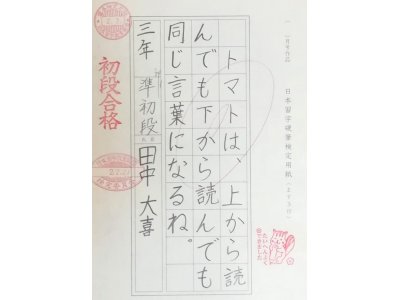 日本習字硬筆検定用紙
トマトは、上から読
んでも下から読んでも
同じ言葉になるね。
三年 準初段 田中大喜
初段合格